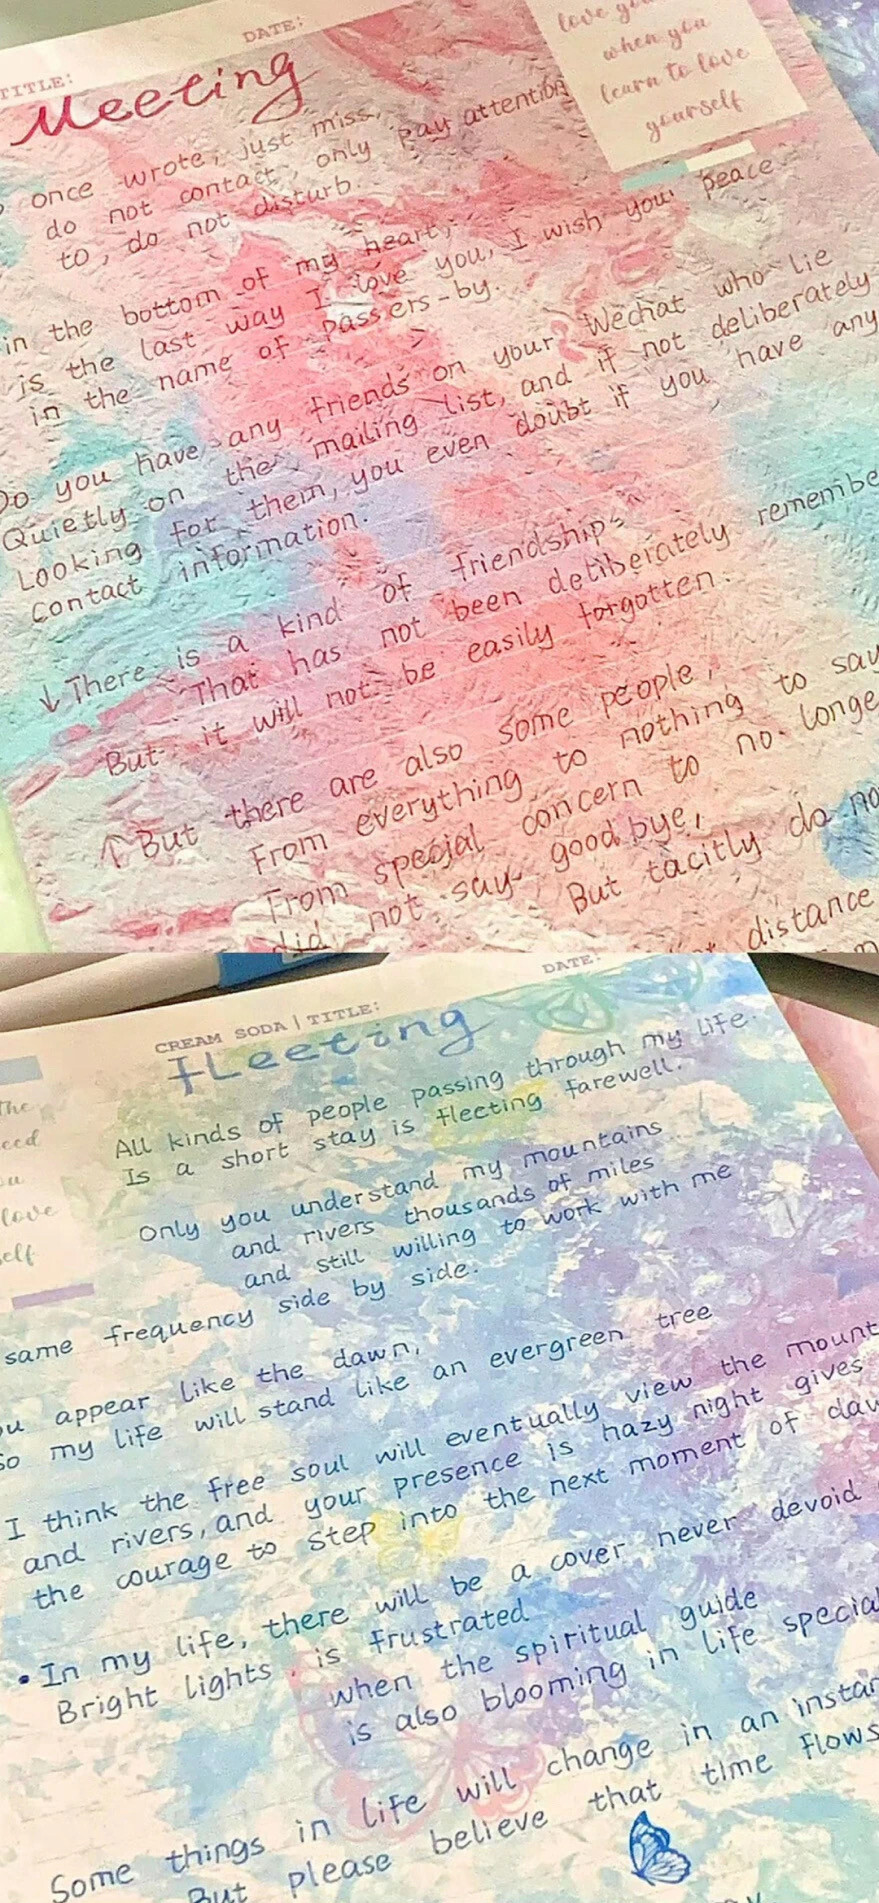 TITLE:
DATE:
Meeting
love you
when you
learn to love
yourself
once wrote, just miss,
do not contact, only pay attention
to, do not disturb.
in the bottom of my heart,
is the last way I love you, I wish you peace
in the name of passers-by.
Do you have any friends on your Wechat who lie
Quietly on the mailing list, and if not deliberately
Looking for them, you even doubt if you have any
contact information.
↓ There is a kind of friendship
That has not been deliberately remembe
But it will not be easily forgotten.
↑ But there are also some people,
From everything to nothing to say
From special concern to no longe
did not say goodbye,
But tacitly do no
distance
CREAM SODA | TITLE:
DATE:
Fleeting
The
eed
u
love
elf
All kinds of people passing through my life.
Is a short stay is fleeting farewell.
Only you understand my mountains
and rivers thousands of miles
and still willing to work with me
same frequency side by side.
ou appear like the dawn,
So my life will stand like an evergreen tree
I think the free soul will eventually view the mount
and rivers, and your presence is hazy night gives
the courage to step into the next moment of daw
• In my life, there will be a cover never devoid
Bright lights, is frustrated
when the spiritual guide
is also blooming in life special
Some things in life will change in an instan
But please believe that time flows